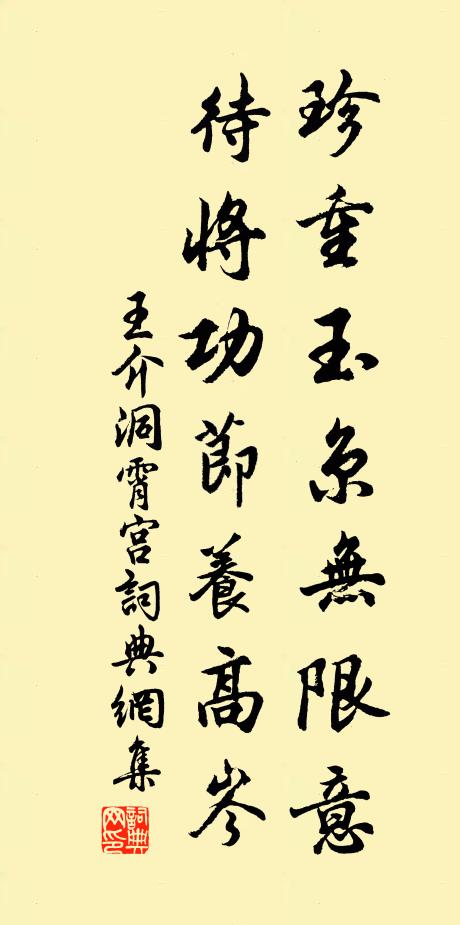 珍重玉京無限意
待將功節養高岑
王介洞霄宮詞典網集
詞典網印